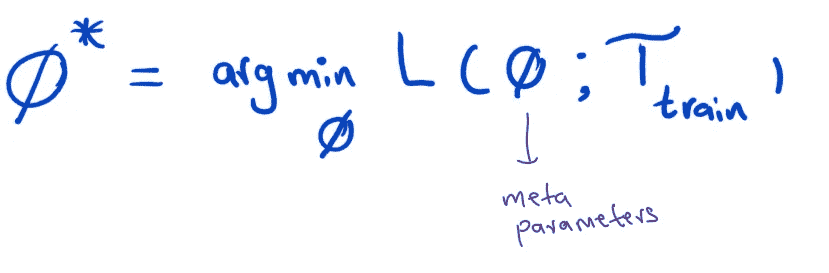 ∅* = arg min L(∅; T train)
∅
meta
parameters